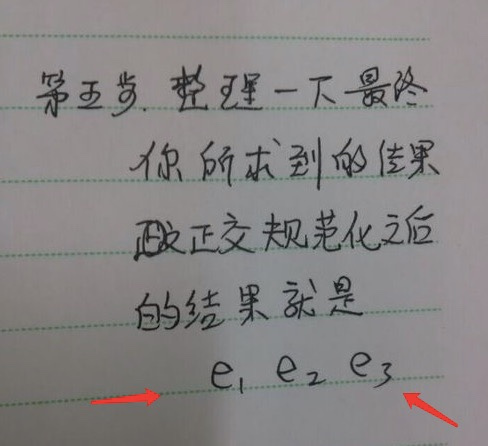 第五步.整理一下最终
你所求到的结果
正交规范化之后
的结果就是
e₁ e₂ e₃